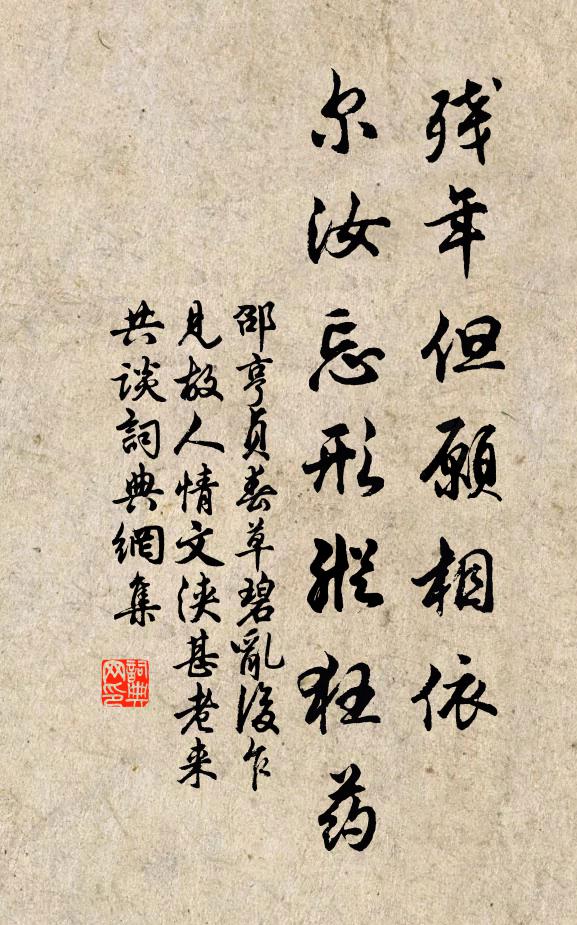 残年但願相依
尔汝忘形縱狂药
邵亨貞春草碧亂後乍
見故人情文浹甚老来
共談詞典網集
詞典网印